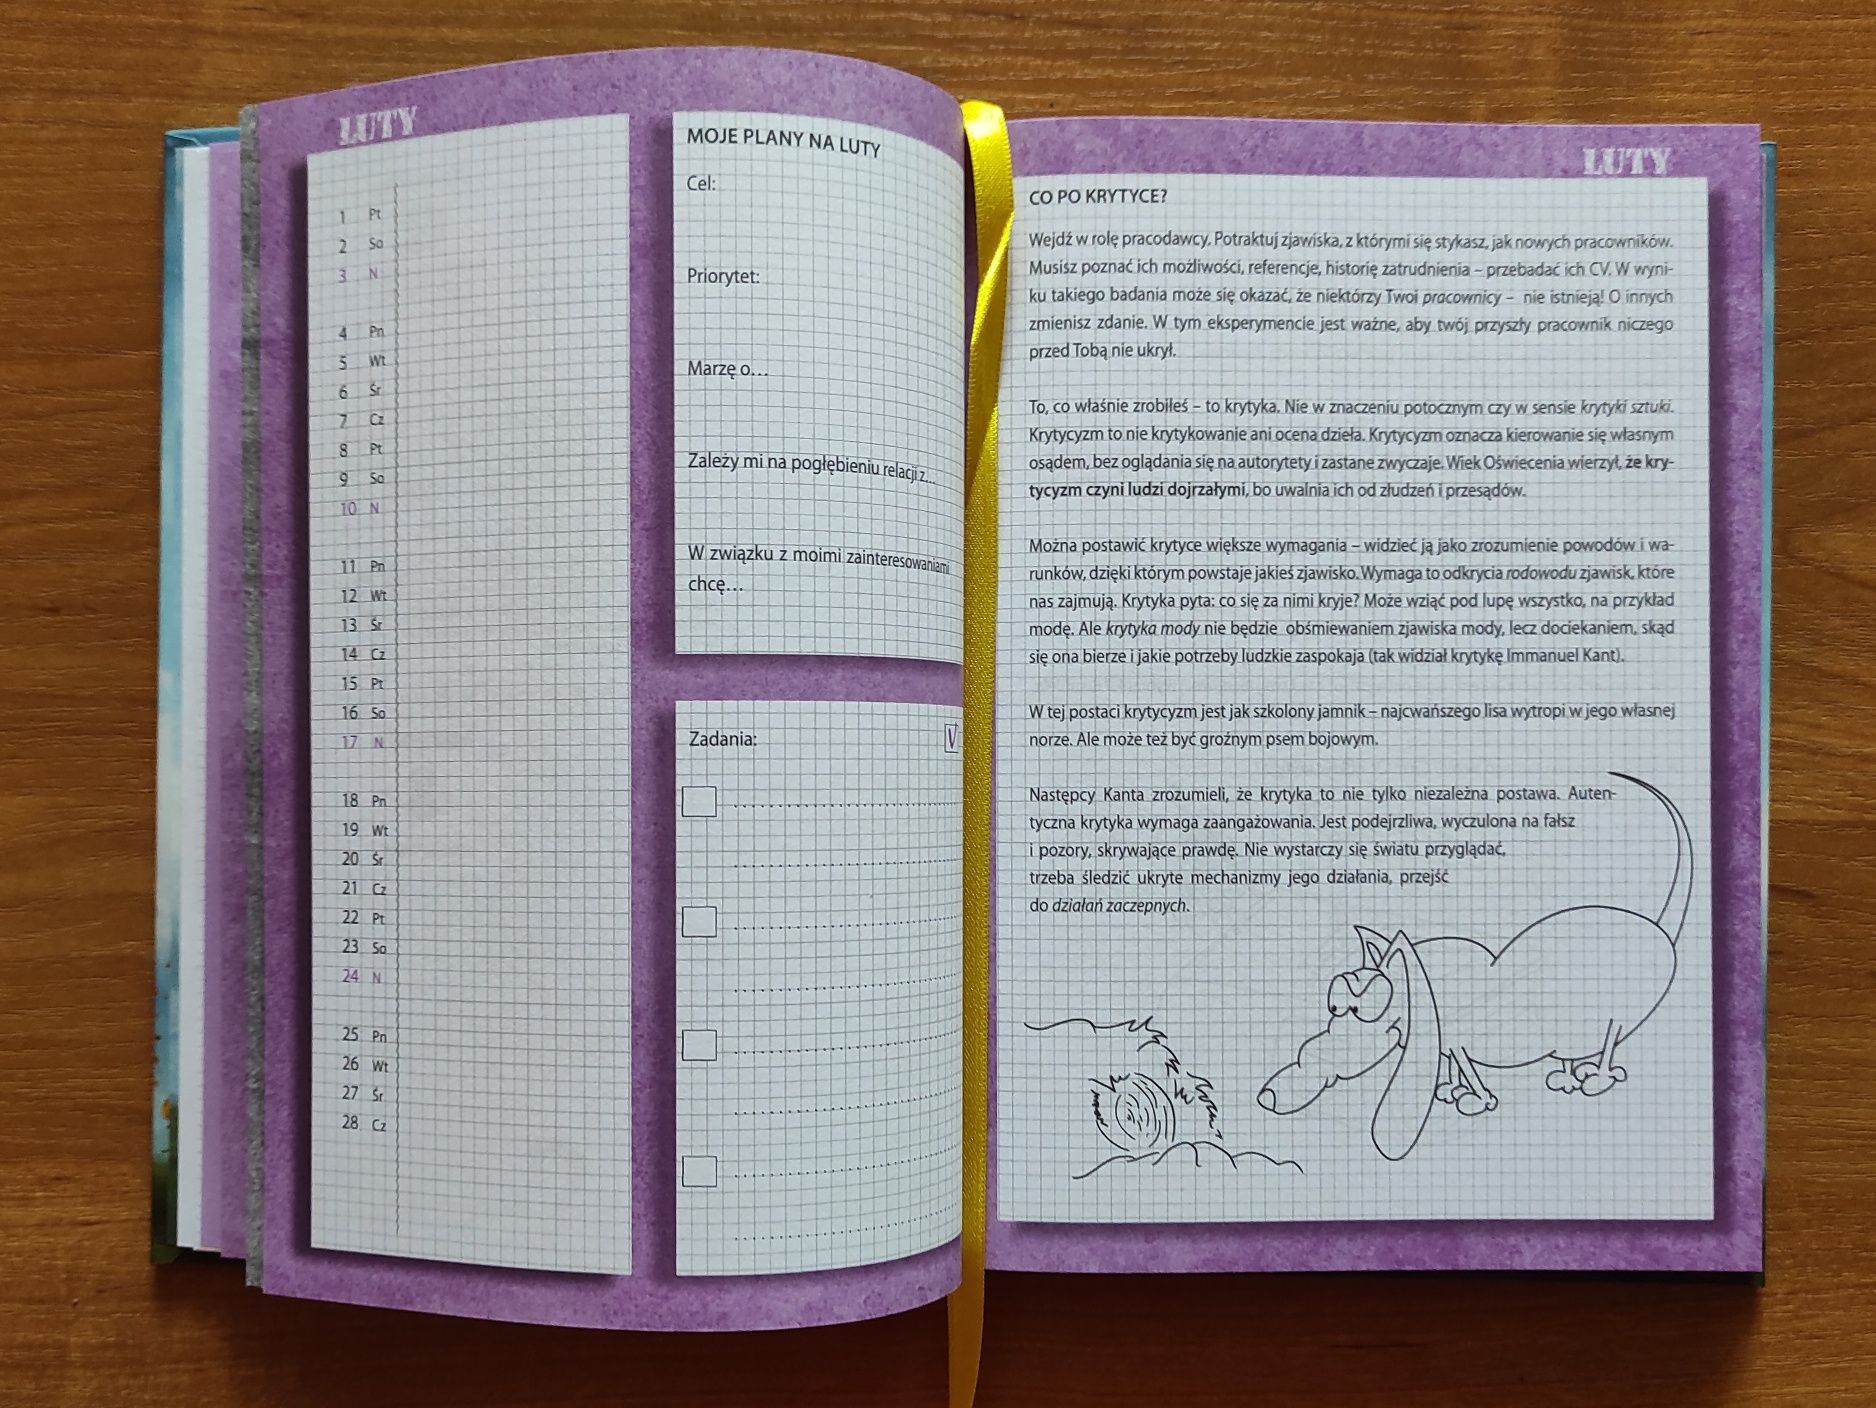 LUTY
1 Pt
2 So
3 N
4 Pn
5 Wt
6 Śr
7 Cz
8 Pt
9 So
10 N
11 Pn
12 Wt
13 Śr
14 Cz
15 Pt
16 So
17 N
18 Pn
19 Wt
20 Śr
21 Cz
22 Pt
23 So
24 N
25 Pn
26 Wt
27 Śr
28 Cz
MOJE PLANY NA LUTY
Cel:
Priorytet:
Marzę o...
Zależy mi na pogłębieniu relacji z...
W związku z moimi zainteresowaniami
chcę...
Zadania: V
LUTY
CO PO KRYTYCE?
Wejdź w rolę pracodawcy. Potraktuj zjawiska, z którymi się stykasz, jak nowych pracowników.
Musisz poznać ich możliwości, referencje, historię zatrudnienia – przebadać ich CV. W wyni-
ku takiego badania może się okazać, że niektórzy Twoi pracownicy – nie istnieją! O innych
zmienisz zdanie. W tym eksperymencie jest ważne, aby twój przyszły pracownik niczego
przed Tobą nie ukrył.
To, co właśnie zrobiłeś – to krytyka. Nie w znaczeniu potocznym czy w sensie krytyki sztuki.
Krytycyzm to nie krytykowanie ani ocena dzieła. Krytycyzm oznacza kierowanie się własnym
osądem, bez oglądania się na autorytety i zastane zwyczaje. Wiek Oświecenia wierzył, że kry-
tycyzm czyni ludzi dojrzałymi, bo uwalnia ich od złudzeń i przesądów.
Można postawić krytyce większe wymagania – widzieć ją jako zrozumienie powodów i wa-
runków, dzięki którym powstaje jakieś zjawisko. Wymaga to odkrycia rodowodu zjawisk, które
nas zajmują. Krytyka pyta: co się za nimi kryje? Może wziąć pod lupę wszystko, na przykład
modę. Ale krytyka mody nie będzie obśmiewaniem zjawiska mody, lecz dociekaniem, skąd
się ona bierze i jakie potrzeby ludzkie zaspokaja (tak widział krytykę Immanuel Kant).
W tej postaci krytycyzm jest jak szkolony jamnik – najcwańszego lisa wytropi w jego własnej
norze. Ale może też być groźnym psem bojowym.
Następcy Kanta zrozumieli, że krytyka to nie tylko niezależna postawa. Auten-
tyczna krytyka wymaga zaangażowania. Jest podejrzliwa, wyczulona na fałsz
i pozory, skrywające prawdę. Nie wystarczy się światu przyglądać,
trzeba śledzić ukryte mechanizmy jego działania, przejść
do działań zaczepnych.